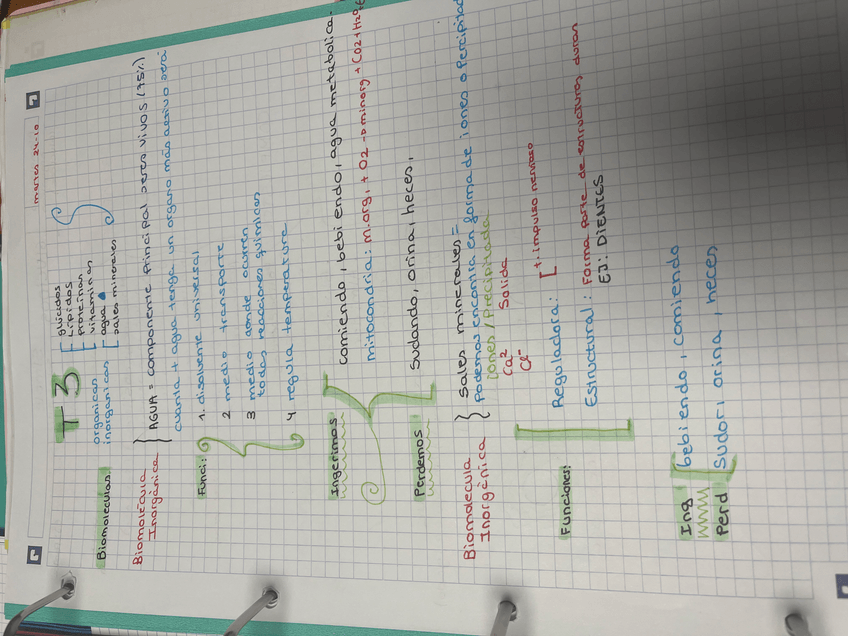 martes 24-10
T3
Biomoléculas:
orgánicas [ glúcidos
lípidos
proteínas
vitaminas
inorgánicas [ agua
sales minerales
Biomolécula
Inorgánica } AGUA = componente principal seres vivos (75%)
cuanta + agua tenga un organo más activo será
Funci:
1. disolvente universal
2 medio transporte
3 medio donde ocurren
todas reacciones químicas
4 regula temperatura
Ingerimos
comiendo, bebiendo, agua metabolica.
mitocondria: m.org, + O2 -> minorg + CO2 + H2O
Perdemos
Sudando, orina, heces,
Biomolecula
Inorgánica } Sales minerales =
Podemos encontra en forma de iones o
iones / Precipitada
Ca2 Salida
Cl-
Funciones:
Reguladora: [ t. impulso nervioso
Estructural: Forma parte de estructuras duras
EJ: DIENTES
Ing [ bebiendo, comiendo
Perd [ sudor, orina, heces